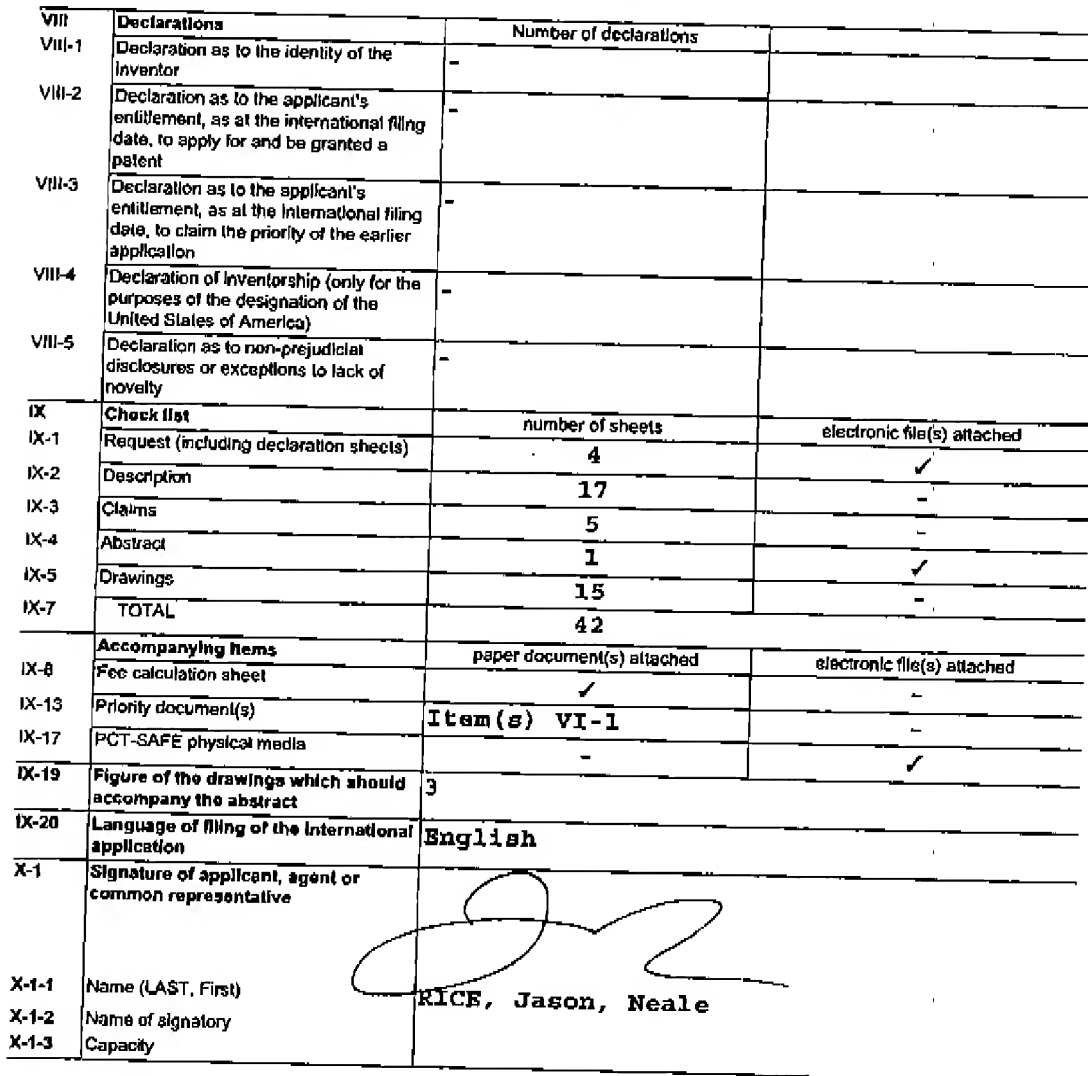 VIII Declarations Number of declarations
VIII-1 Declaration as to the identity of the
inventor -
VIII-2 Declaration as to the applicant's
entitlement, as at the international filing
date, to apply for and be granted a
patent -
VIII-3 Declaration as to the applicant's
entitlement, as at the international filing
date, to claim the priority of the earlier
application -
VIII-4 Declaration of inventorship (only for the
purposes of the designation of the
United States of America) -
VIII-5 Declaration as to non-prejudicial
disclosures or exceptions to lack of
novelty -
IX Check list number of sheets electronic file(s) attached
IX-1 Request (including declaration sheets) 4 ✓
IX-2 Description 17 -
IX-3 Claims 5 -
IX-4 Abstract 1 ✓
IX-5 Drawings 15 -
IX-7 TOTAL 42
Accompanying items paper document(s) attached electronic file(s) attached
IX-8 Fee calculation sheet ✓ -
IX-13 Priority document(s) Item(s) VI-1 -
IX-17 PCT-SAFE physical media - ✓
IX-19 Figure of the drawings which should
accompany the abstract 3
IX-20 Language of filing of the international
application English
X-1 Signature of applicant, agent or
common representative
X-1-1 Name (LAST, First) RICE, Jason, Neale
X-1-2 Name of signatory
X-1-3 Capacity